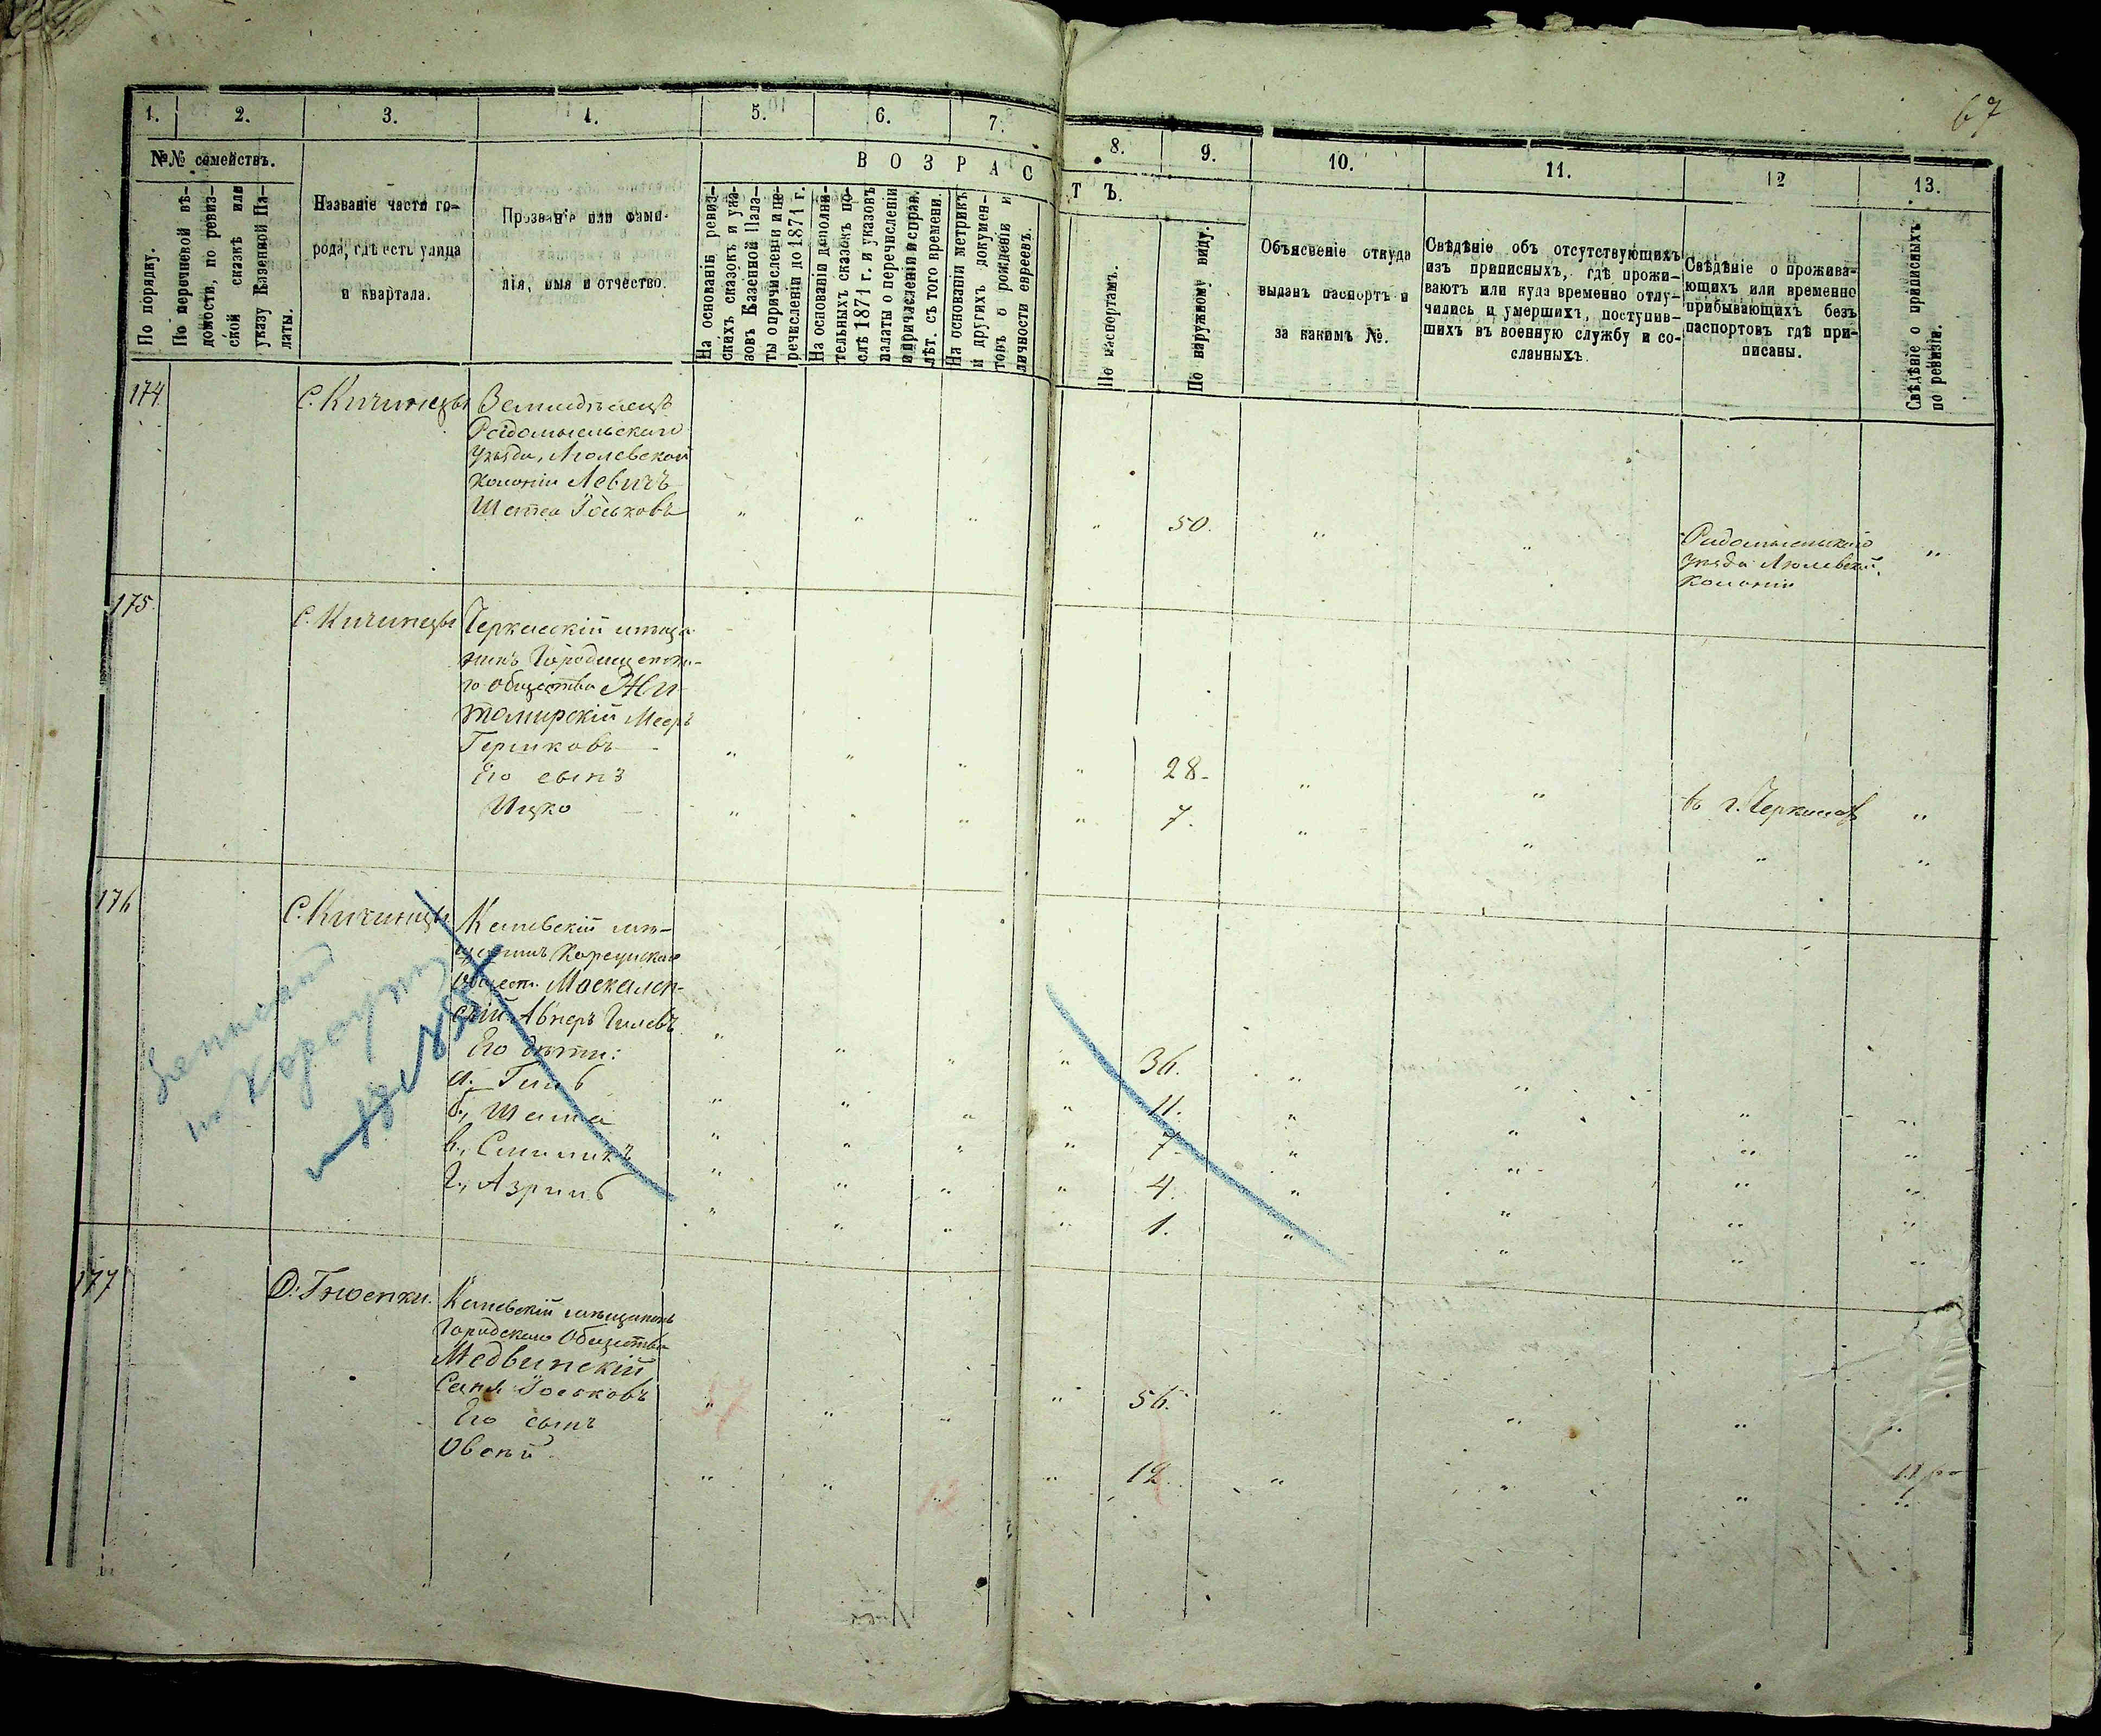 67
1. 2. 3. 4. 5. 6. 7. 8. 9. 10. 11. 12 13.
№№ семействъ.
По порядку.
По перечневой вѣ-
домости, по ревиз-
ской сказкѣ или
указу Казенной Па-
латы.
Названіе части го-
рода, гдѣ есть улица
и квартала.
Прозваніе или фами-
лія, имя и отчество.
ВОЗРАСТЪ.
На основаніи ревиз-
скихъ сказокъ и ука-
зовъ Казенной Пала-
ты о причисленіи и пе-
речисленіи до 1871 г.
На основаніи дополни-
тельныхъ сказокъ по-
слѣ 1871 г. и указовъ
палаты о перечисленіи
и причисленіи и справ.
лѣт. съ того времени.
На основаніи метрикъ
и другихъ докумен-
товъ о рожденіи и
личности евреевъ.
По паспортамъ.
По наружному виду.
Объясненіе откуда
выданъ паспортъ и
за какимъ №.
Свѣдѣніе объ отсутствующихъ
изъ приписныхъ, гдѣ прожи-
ваютъ или куда временно отлу-
чились и умершихъ, поступив-
шихъ въ военную службу и со-
сланныхъ.
Свѣдѣніе о прожива-
ющихъ или временно
прибывающихъ безъ
паспортовъ гдѣ при-
писаны.
Свѣдѣніе о приписныхъ
по ревизіи.
174 С. Кичинцы Земледѣлецъ
Радомысльскаго
уѣзда,
колоніи Левичъ
Іоськовъ " " " " 50. " " "
Радомысльскаго
уѣзда
колоніи
175. С. Кичинцы Черкасскій мѣща
нинъ Городищенска-
го общества Жи-
томирскій Мееръ
Гершковъ " " " " 28. " " въ г. Черкасах "
Его сынъ
Ицко " " " " 7. " " " "
176 С. Кичинцы Каневскій мѣ-
щанинъ Корсунскаго
Общест. Маскален-
скій Авнеръ Гилевъ " " " " 36. " " " "
Его дѣти:
а. " " " " 11. " " " "
б., Шама " " " " 7. " " " "
в., " " " " 4. " " " "
г., Азріилъ " " " " 1. " " " "
177 Каневскій мѣщанинъ
Городскаго Общества
Медвинскій
Іоськовъ " " " " 56. " " " "
57
Его сынъ
Овсѣй " " " " 12. " " " "
12